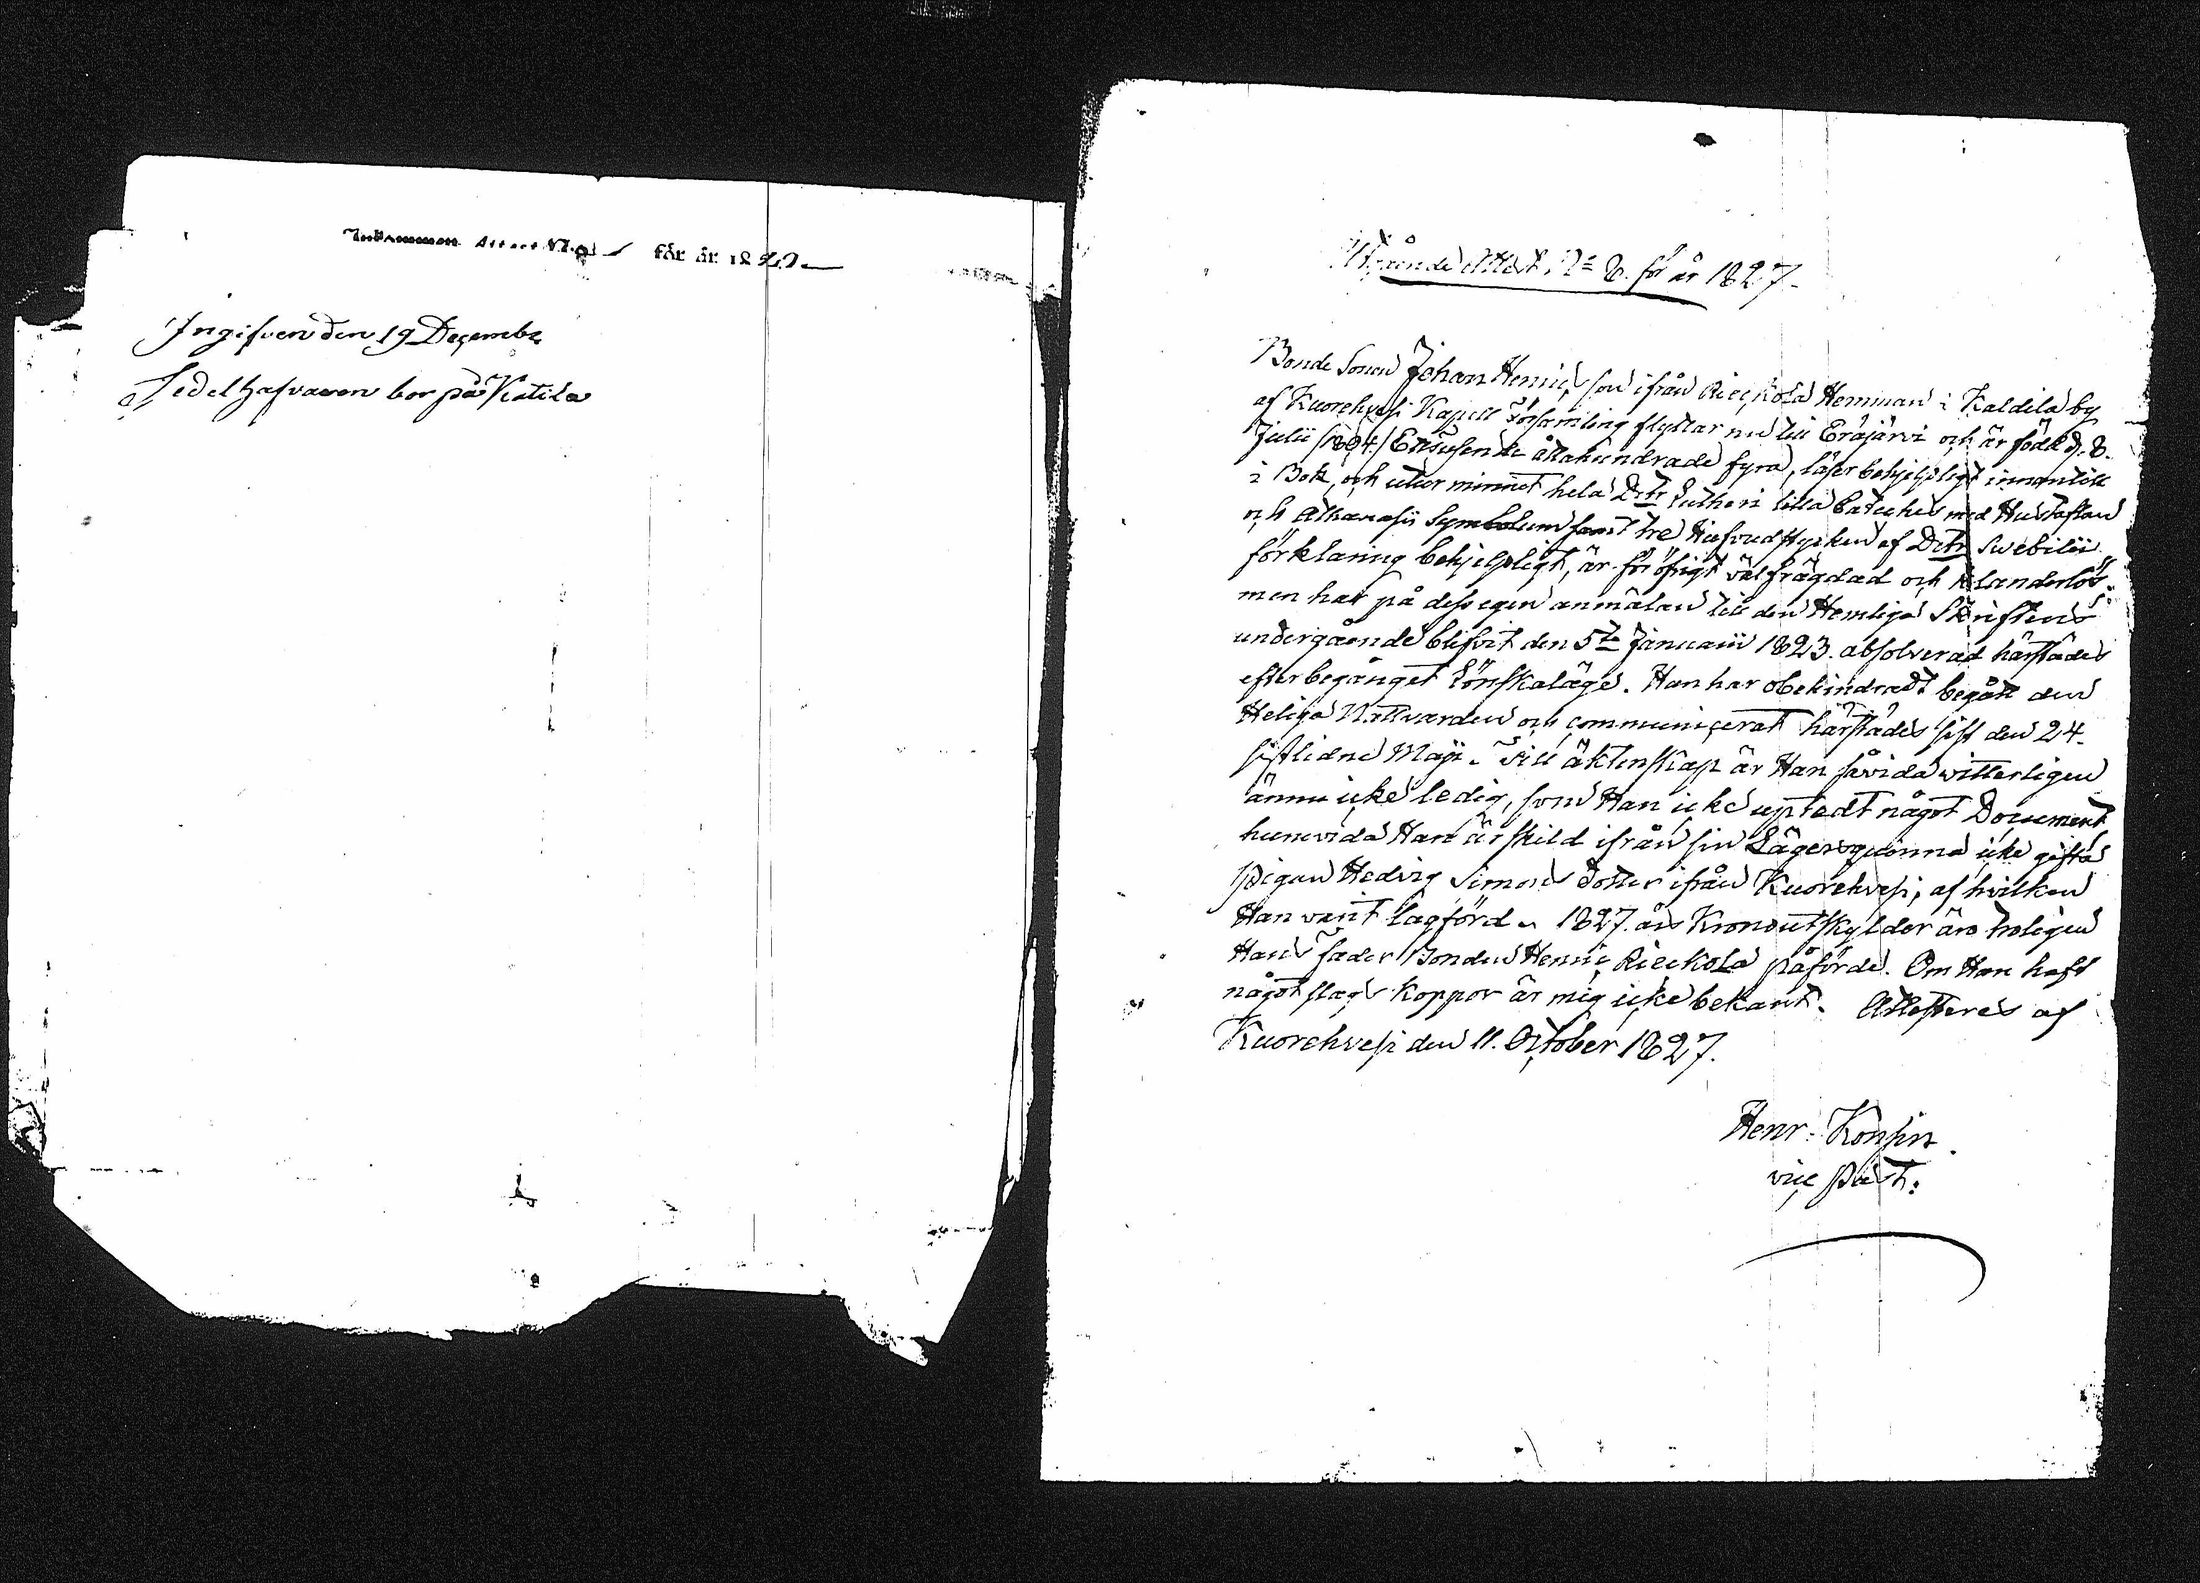 Inkommen Attest N:o för år 1827
Ingifven den 19 Decembr
Sedelhafvaren bor på Kotila
Utgående Attest, No 8. för år 1827.
Bonde Sonen Johan Henrics son ifrån Rieckola Hemman i Kaldila by
af Kuorehvesi Kapell Församling flyttar nu till Eräjärvi och är född d. 8.
Julii /1804./ Ettusende åttahundrade fyra, läser behjelpligt innantill
i Bok, och utur minnet hela Dctr Lutheri lilla Cateches med Hustaflan
och Athanasii Symbolum samt tre Hufvudstycken af Dctr Swebilii
förklaring behjelpligt, är för öfrigt välfrägdad och klanderlös,
men har på dess egen anmälan till den Hemliga Skriftens
undergående blifvit den 5te Januarii 1823. absolverad härstädes
efter begånget Lönskaläge. Han har obehindradt begått den
Heliga Nattvarden och communicerat härstädes sist den 24.
sistlidne Maji. Till äktenskap är Han såvida witterligen
ännu icke ledig, som Han icke uptedt något Document
huruvida Han är skild ifrån sin Lägersqvinna icke gifta
pigan Hedvig Simons dotter ifrån Kuorehvesi, af hvilken
Han varit lagförd. 1827. års Kronoutskylder äro troligen
Hans fader Bonden Henric Rieckola påförde. Om Han haft
något slags koppor är mig icke bekant. Attesteras af
Kuorehvesi den 11. October 1827.
Henr. Konsin
vice Past: